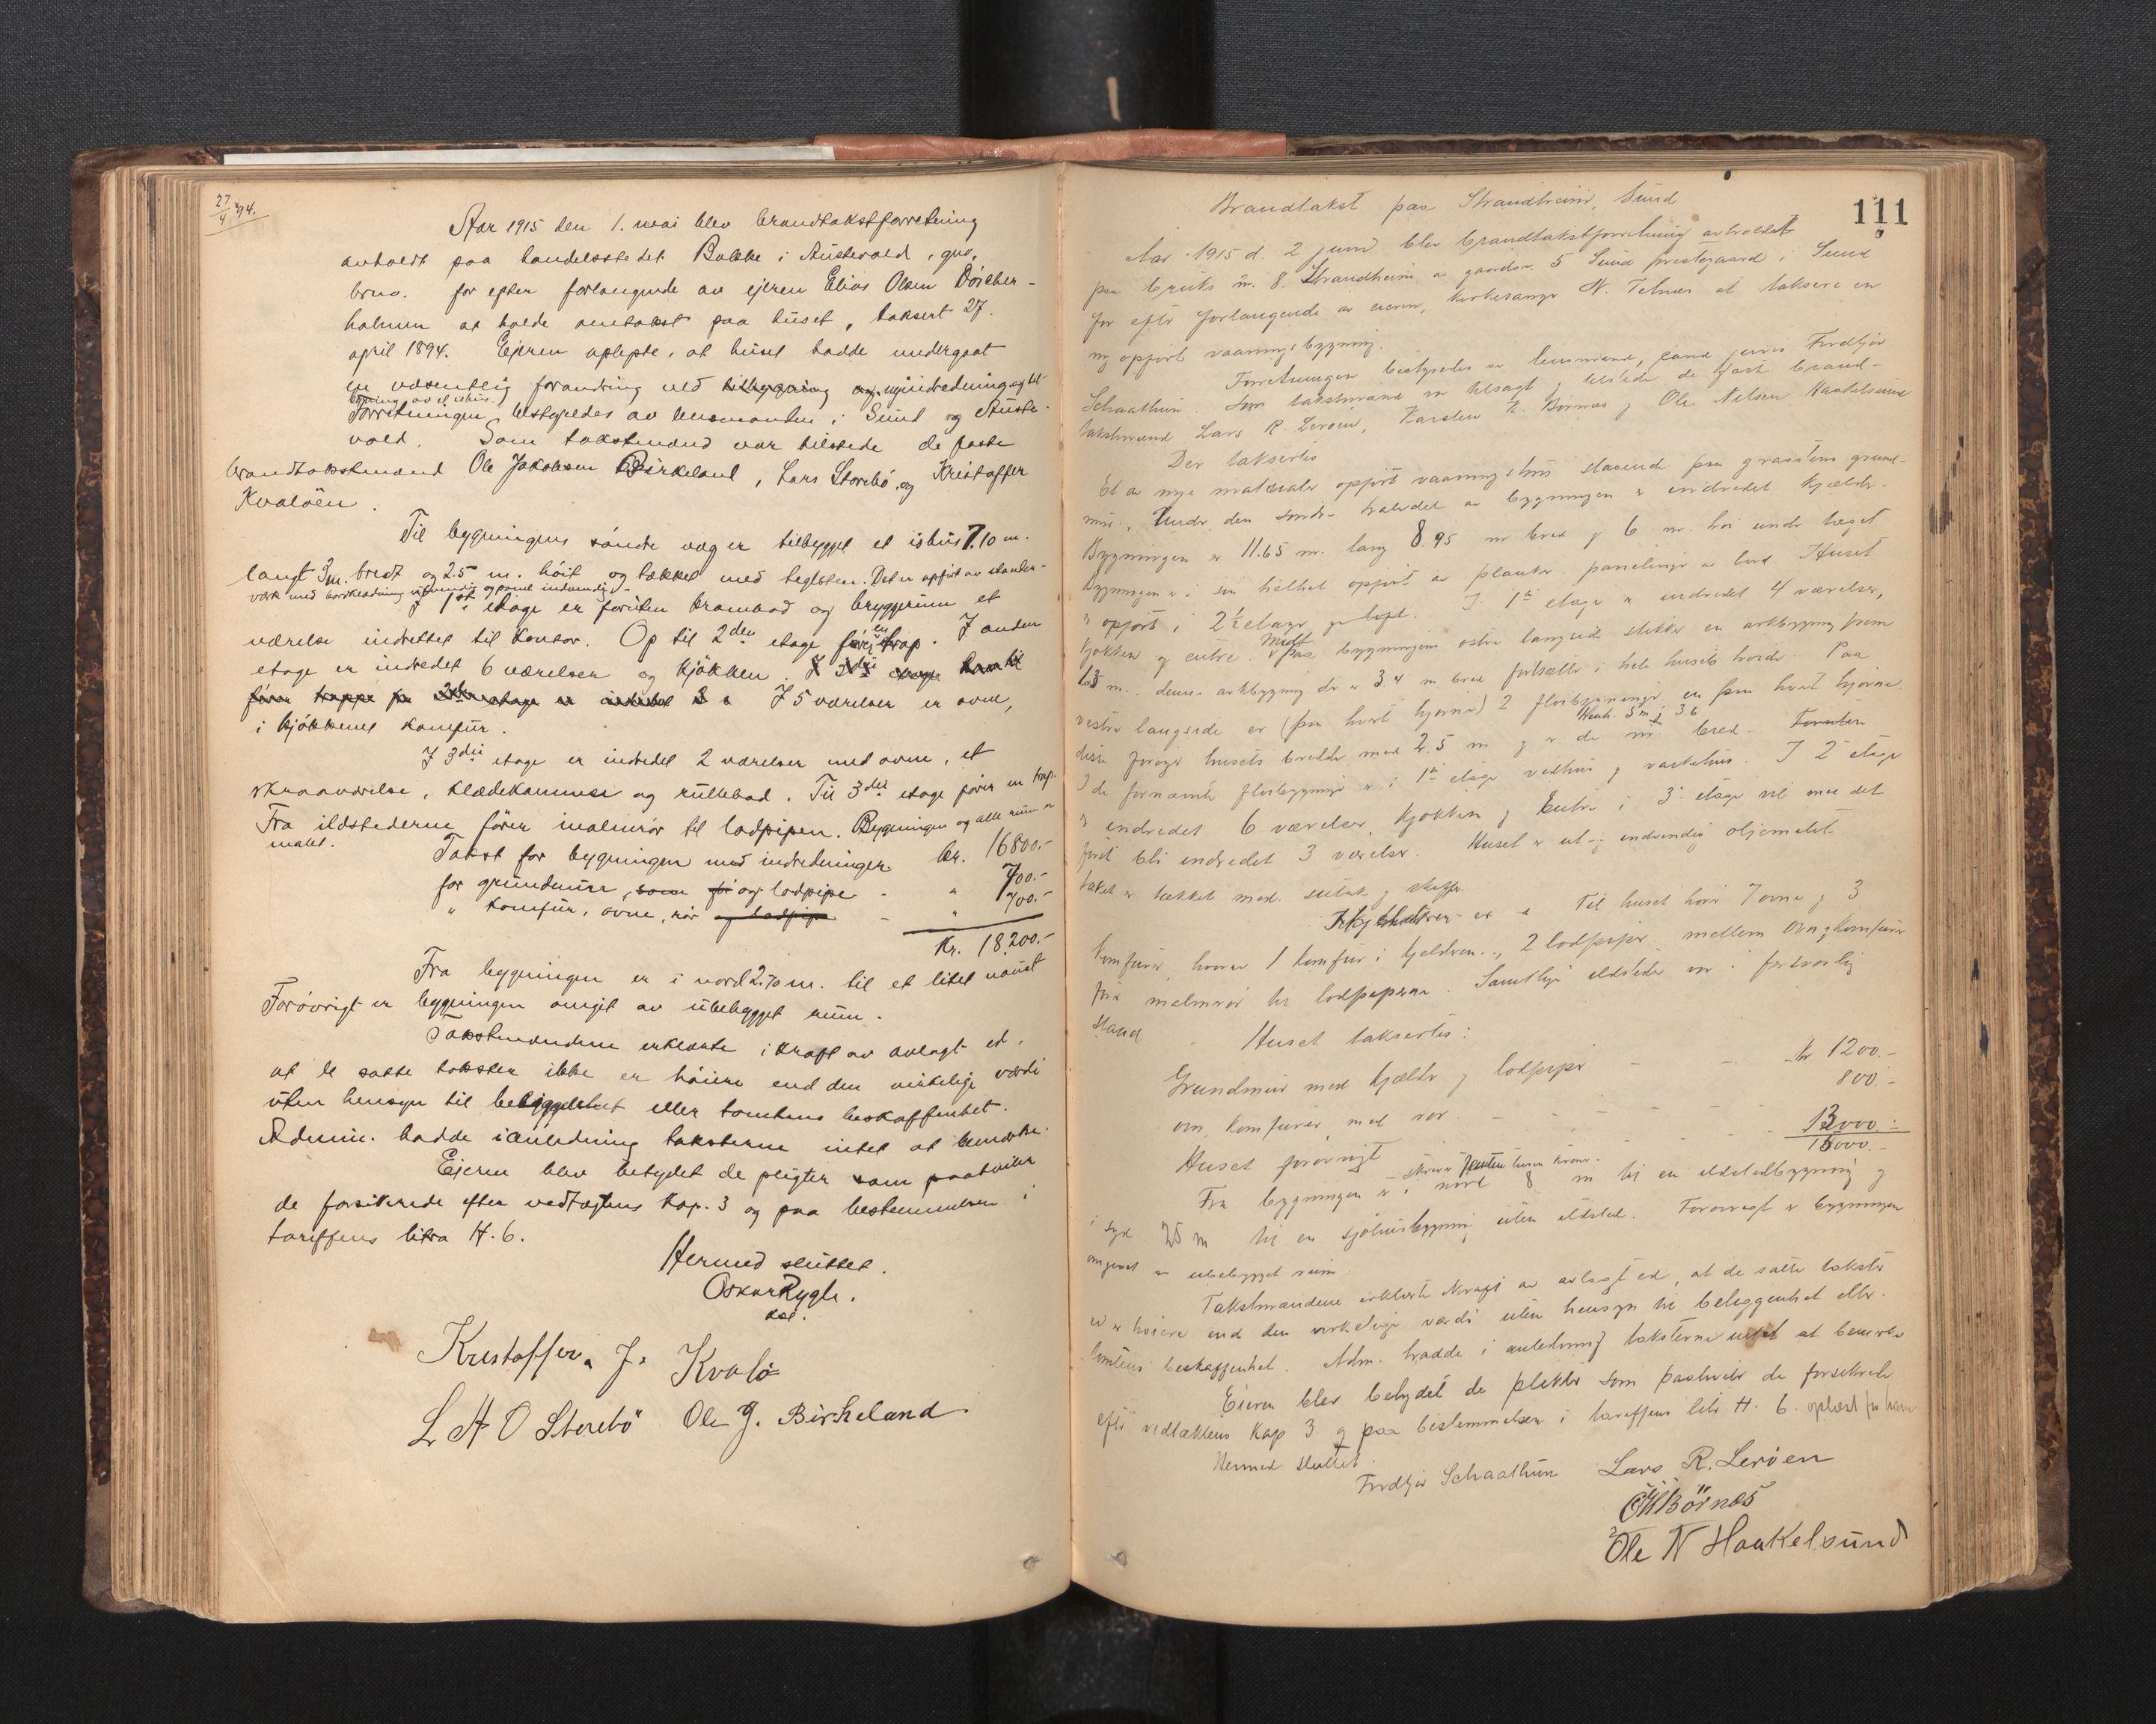 27/4 94.
Aar 1915 den 1. mai blev brandtakstforretning
avholdt paa handelsstedet Bakke i Austevold, gno,
bruo. for efter forlangende av ejeren Elias Olsen
holmen at holde omtakst paa huset, taksert 27.
april 1894. Ejeren oplyste, at huset hadde undergaat
en væsentlig forandring ved tilbygning og nyindredning og til-
bygning av et ishus.
Forretningen bestyredes av lensmanden i Sund og Auste-
vold. Som takstmænd var tilstede de faste
brandtakstmænd Ole Jakobsen Birkeland, Lars Storebø og Kristoffer
Kvaløen.
Til bygningens søndre væg er tilbygget et ishus 7.10 m.
langt 3 m. bredt og 2.5 m. høit og tækket med teglsten. Det er opført av stender-
værk med bordklædning utvendig og panel indvendig.
I 1ste etage er foruten krambod og bryggerum et
værelse indrettet til kontor. Op til 2den etage fører en trap. I anden
etage er indredet 6 værelser og kjøkken. I 3die etage
fører trappe fra 2den etage er indredet 3 I 5 værelser er ovne,
i kjøkkenet komfur.
I 3die etage er indredet 2 værelser med ovne, et
skraaværelse, klædekammer og rullebod. Til 3die etage fører en trap.
Fra ildstederne fører malmrør til lodpipen. Bygningen og alle rum er
malet.
Takst for bygningen med indredninger kr. 16800.-
for grundmur, som for og lodpipe - " 700.-
" komfur, ovne, rør og lodpipe - " 700.-
Kr. 18.200.-
Fra bygningen er i nord 2.70 m. til et litet naust
Forøvrigt er bygningen omgit av ubebygget rum.
Takstmændene erklærte i kraft av avlagt ed,
at de satte takster ikke er høiere end den virkelige værdi
uten hensyn til beliggenhet eller tomtens beskaffenhet.
Admin. hadde i anledning taksterne intet at bemerke.
Ejeren blev betydet de pligter som paahviler
de forsikrede efter vedtægtens kap. 3 og paa bestemmelsen i
tariffens litra H. 6.
Hermed sluttet.
Oskar Rygh.
kst.
Kristoffer J. Kvalø
L H O Storebö Ole J. Birkeland
111
Brandtakst paa Strandheim, Sund
Aar 1915 d. 2 juni blev brandtakstforretning avholdt
paa bruks nr. 8. Strandheim av gaardsnr. 5 Sund prestegaard i Sund
for efter forlangende av eieren, kirkesanger N. Telnæs at taksere en
ny opført vaaningsbygning.
Forretningen bestyredes av lensmand, cand. juris Fredtjov
Schaathun Som takstmænd var tilsagt og tilstede de faste brand-
takstmænd Lars R. Lerøen, Karsten H. Børnæs og Ole Nilsen Haakelsund
Der taksertes
Et av nye materialer opført vaaningshus staaende paa graastens grund-
mur. Under den søndre halvdel av bygningen er indredet kjælder.
Bygningen er 11.65 m. lang 8.95 m bred og 6 m. høi under taget
Bygningen er i sin helhet opført av planker panelinger av bord Huset
er opført i 2½ etager I 1ste etage er indredet 4 værelser,
kjøkken og entre. Midt paa bygningens østre langside stikker en arkbygning frem
m. denne arkbygning der er 3.4 m bred fortsætter i hele husets bredde. Paa
vestre langside er (paa hvert hjørne) 2 fløibygninger, en paa hvert hjørne
disse forøger husets bredde med 2.5 m og er de henh. 5 m og 3.6 m bred. Foruten
I de fornævnte fløibygninger er i 1ste etage vedhus og vaskehus. I 2 etage
er indredet 6 værelser, kjøkken og Entre i 3. etage vil med det
første bli indredet 3 værelser. Huset er ut- og indvendig oljemalet
taket er tækket med sutak og skiffer.
Til huset hører 7 ovne og 3
komfurer, hvorav 1 komfur i kjelderen, 2 lodpiper mellem ovn og komfurer
fører malmrør til lodpiperne. Samtlige ildsteder var i forsvarlig
stand. Huset taksertes:
Grundmur med kjælder og lodpiper - - Kr 1200.-
ovn, komfurer med rør - - - - 800.-
Huset forøvrigt - - - 13000.-
15000.-
skriver femten tusen kroner.
Fra bygningen er i nord 8 m til en ildstedbygning og
i syd 25 m til en sjøhusbygning uten ildsted. Forøvrigt er bygningen
omgivet av ubebygget rum.
Takstmændene erklærte i kraft av avlagt ed, at de satte takster
ei er høiere end den virkelige værdi uten hensyn til beliggenhet eller
tomtens beskaffenhet. Adm. hadde i anledning taksterne intet at bemerke
Eieren blev betydet de plikter som paahviler de forsikrede
efter vedtæktens Kap 3 og paa bestemmelsen i tariffens litr H. 6. oplæst for ham
Hermed sluttet.
Fredtjov Schaathun Lars R. Lerøen
K H Børnæs
Ole N Haakelsund